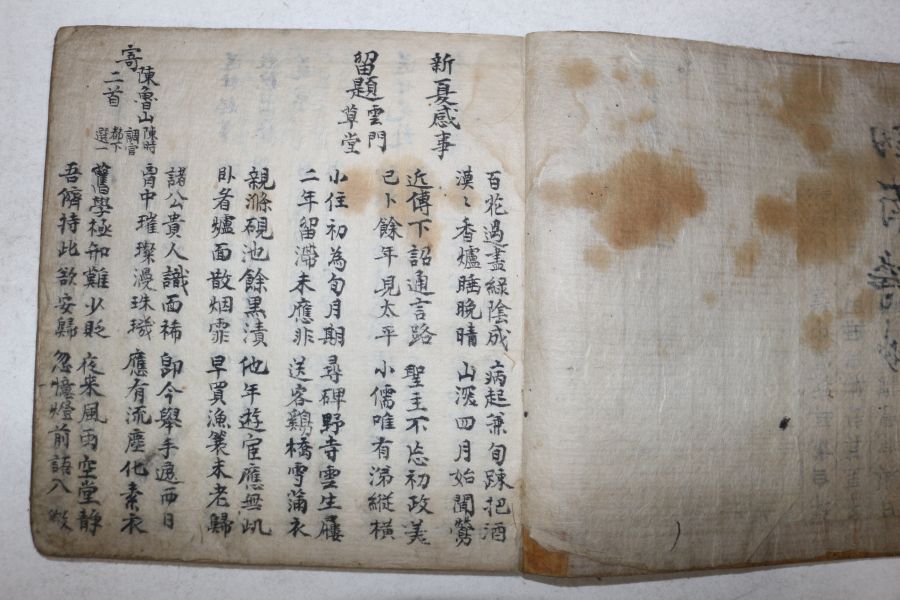 新夏感事
百花過盡綠陰成 病起兼旬踈把酒
漠〻香爐睡晚晴 山深四月始聞鶯
近傳下詔通言路 聖主不忘初政美
已卜餘年見太平 小儒唯有涕縱橫
留題雲門
草堂
小住初為旬月期 尋碑野寺雲生屨
二年留滯未應非 送客谿橋雪滿衣
親滌硯池餘黑漬 他年遊宦應無此
卧看爐面散烟霏 早買漁簑未老歸
寄陳魯山
二首
陳時
調官
都下
選一
諸公貴人識面稀 即今舉手遮西日
胷中璀璨漫珠璣 應有流塵化素衣
舊學極知難少貶 夜來風雨空堂靜
吾儕持此欲安歸 忽憶燈前語入微